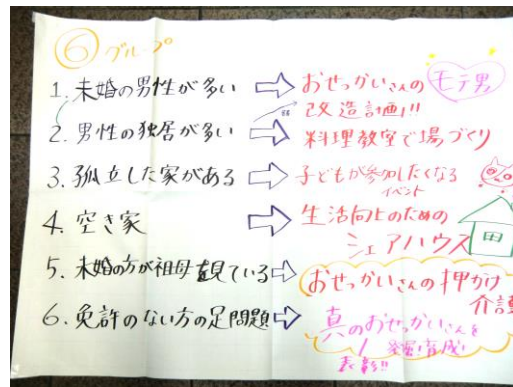 ⑥グループ
1. 未婚の男性が多い ⇨ おせっかいさんの モテ男
改造計画!!
2. 男性の独居が多い ⇨ 料理教室で場づくり
3. 孤立した家がある ⇨ 子どもが参加したくなる
イベント
4. 空き家 ⇨ 生活向上のための
シェアハウス
5. 未婚の方が祖母を見ている ⇨ おせっかいさんの押かけ
介護
6. 免許のない方の足問題 ⇨ 真のおせっかいさんを
発掘!育成!
表彰!!